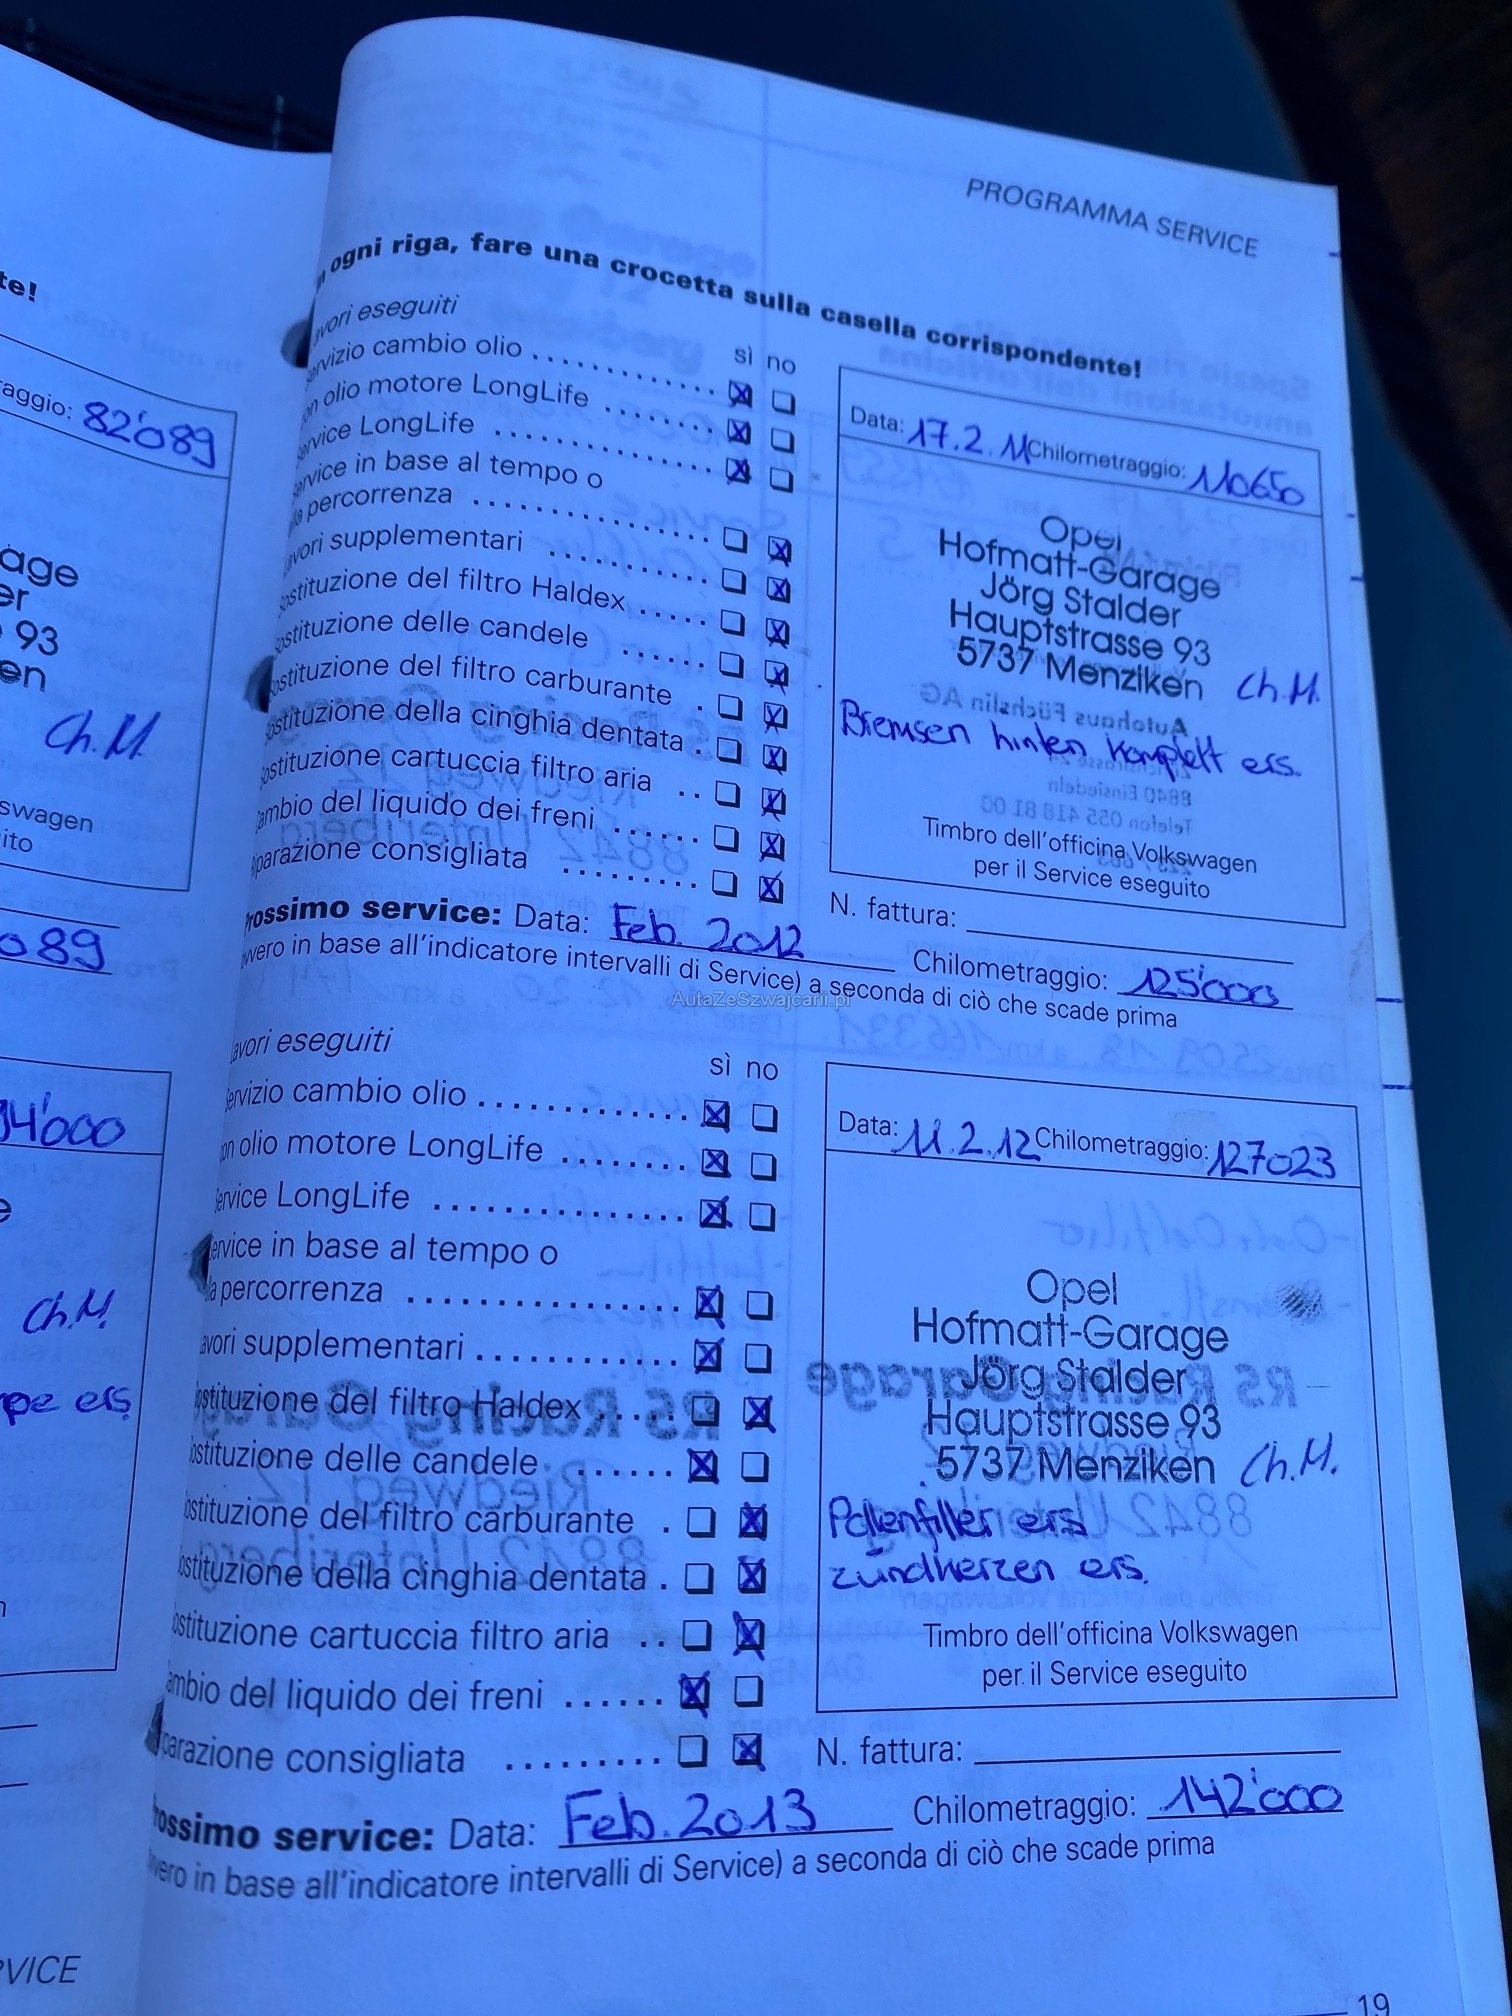 te!
aggio: 82'089
age
er
93
en
Ch.M.
swagen
ito
089
94'000
Ch.M.
pe ers
RVICE
PROGRAMMA SERVICE
In ogni riga, fare una crocetta sulla casella corrispondente!
avori eseguiti
sì no
ervizio cambio olio
on olio motore LongLife
ervice LongLife
ervice in base al tempo o
la percorrenza
avori supplementari
ostituzione del filtro Haldex
ostituzione delle candele
ostituzione del filtro carburante
ostituzione della cinghia dentata
ostituzione cartuccia filtro aria
ambio del liquido dei freni
parazione consigliata
Data: 17.2.11 Chilometraggio: 110650
Opel
Hofmatt-Garage
Jörg Stalder
Hauptstrasse 93
5737 Menziken Ch.M.
Bremsen hinten komplett ers.
Timbro dell'officina Volkswagen
per il Service eseguito
N. fattura:
rossimo service: Data: Feb. 2012 Chilometraggio: 125'000
vvero in base all'indicatore intervalli di Service) a seconda di ciò che scade prima
AutaZeSzwajcarii.pl
avori eseguiti
sì no
ervizio cambio olio
on olio motore LongLife
ervice LongLife
ervice in base al tempo o
la percorrenza
avori supplementari
ostituzione del filtro Haldex
ostituzione delle candele
ostituzione del filtro carburante
ostituzione della cinghia dentata
ostituzione cartuccia filtro aria
ambio del liquido dei freni
parazione consigliata
Data: 11.2.12 Chilometraggio: 127023
Opel
Hofmatt-Garage
Jörg Stalder
Hauptstrasse 93
5737 Menziken Ch.M.
Pollenfilter ers
zündkerzen ers.
Timbro dell'officina Volkswagen
per il Service eseguito
N. fattura:
rossimo service: Data: Feb. 2013 Chilometraggio: 142'000
vvero in base all'indicatore intervalli di Service) a seconda di ciò che scade prima
19